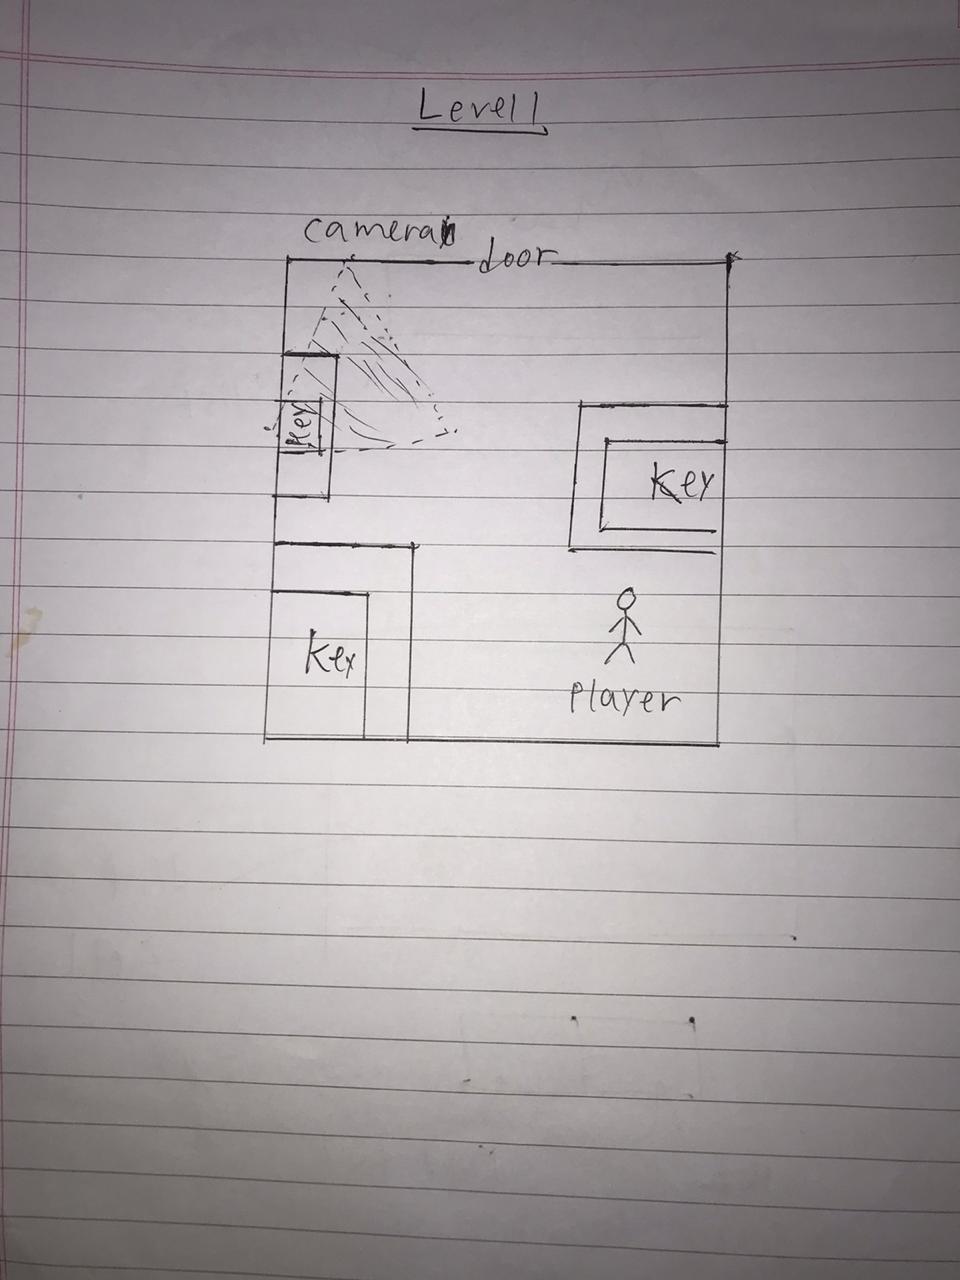 Level 1
camera
door
Key
Key
Key
Player